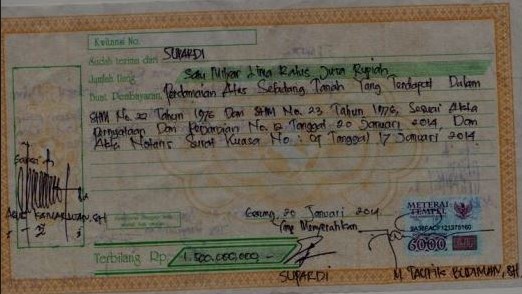 Kwitansi No.
Sudah terima dari SUPARDI
Jumlah Uang Satu Milyar Lima Ratus Juta Rupiah
Buat Pembayaran Perdamaian Atas Sebidang Tanah Yang Terdapat Dalam
SHM No. 22 Tahun 1976 Dan SHM No. 23 Tahun 1976, Sesuai Akta
Pernyataan Dan Perdamaian No. 12 Tanggal 20 Januari 2014, Dan
Akta Notaris Surat Kuasa No : 09 Tanggal 17 Januari 2014.
Saksi
Gerung, 20 Januari 2014
Yang Menyerahkan
METERAI
TEMPEL
6000
Terbilang Rp. 1.500.000.000,-
SUPARDI
M. TAUFIK BUDIMAN, SH